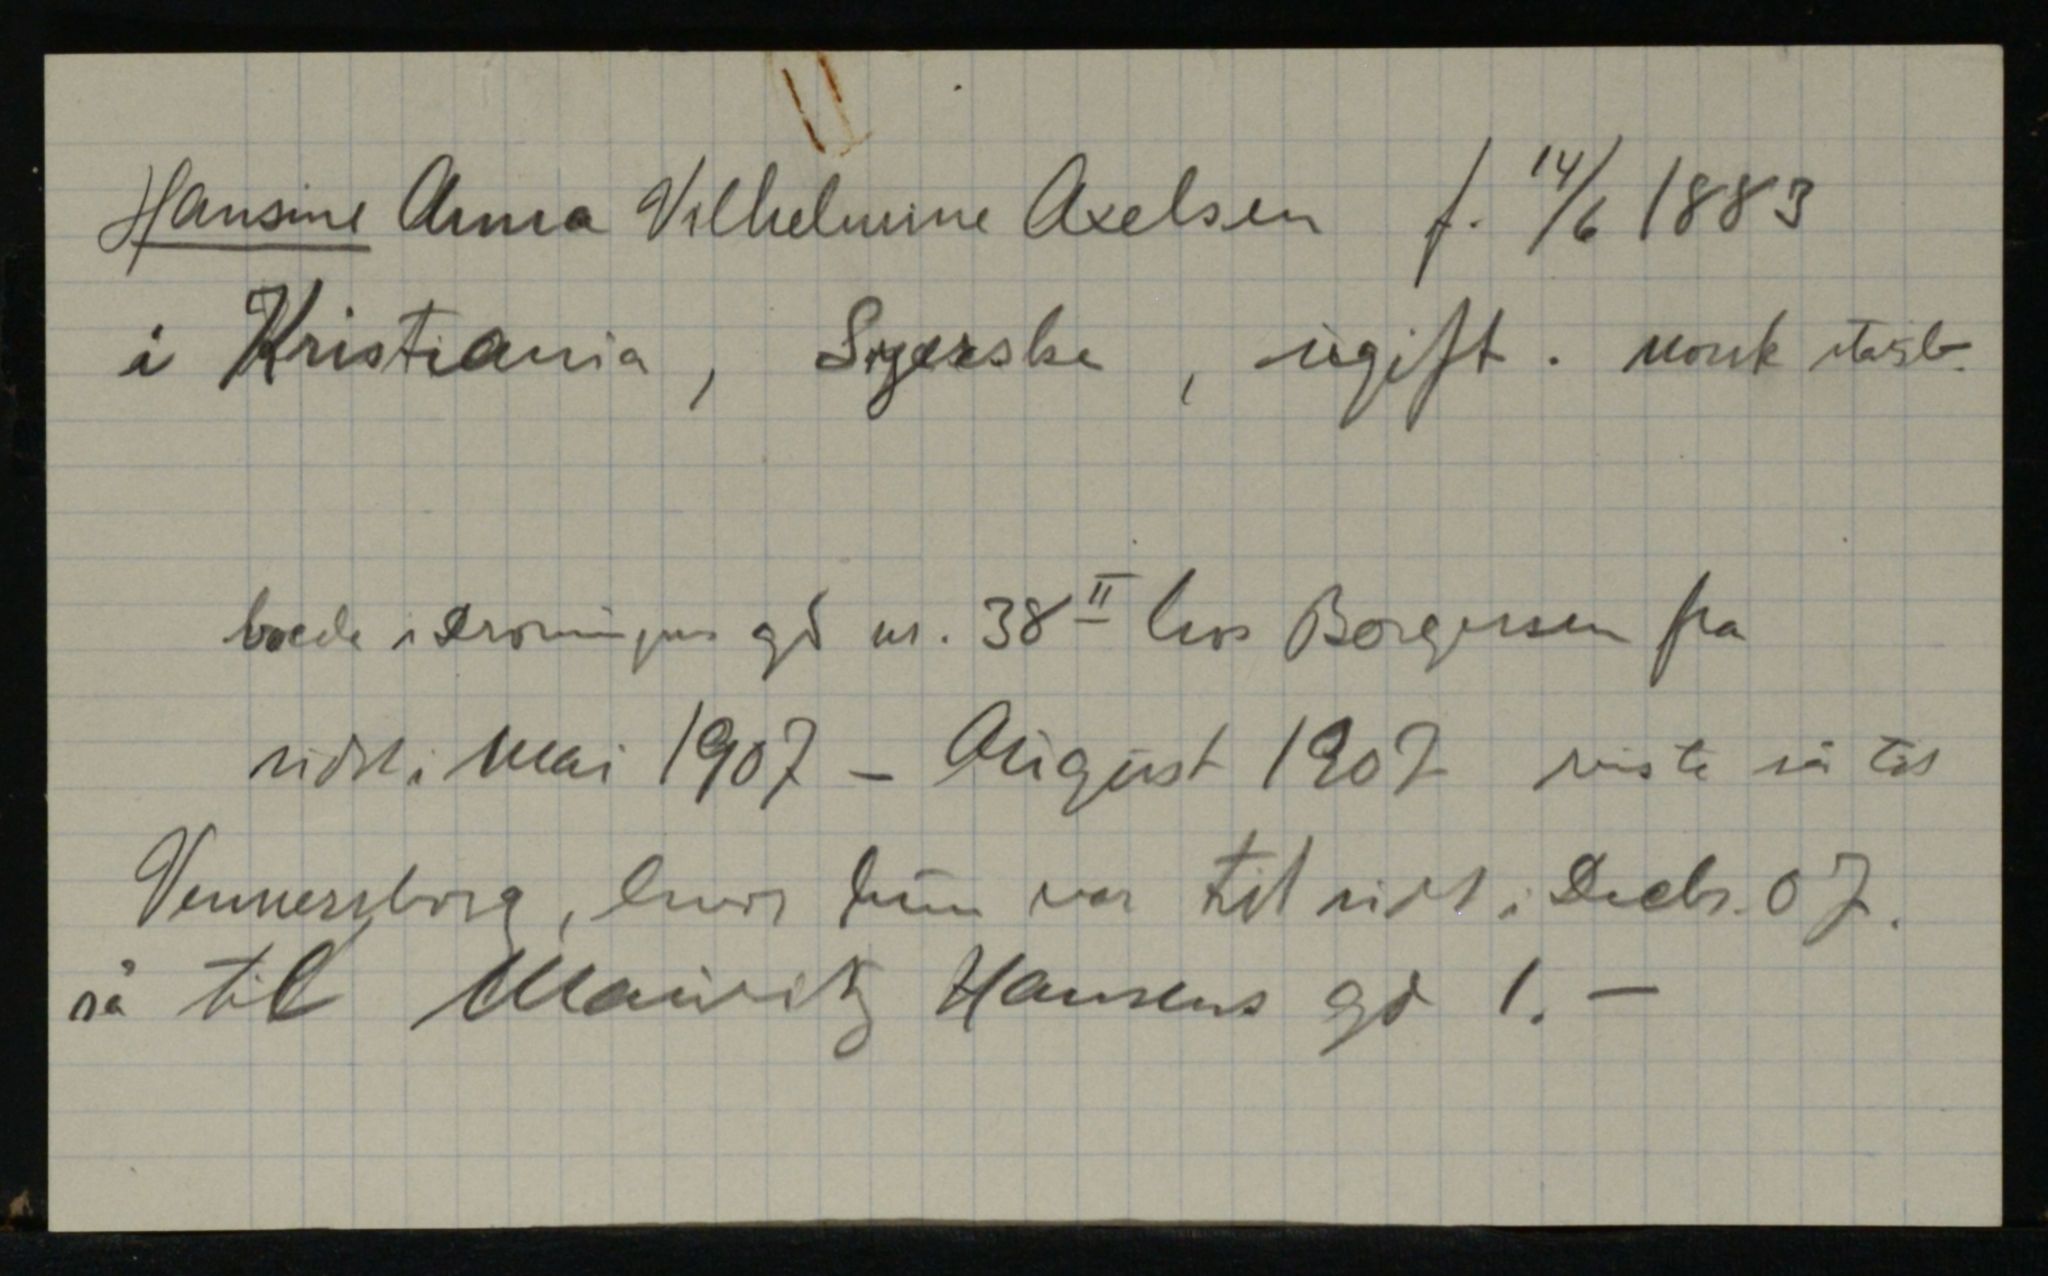 Hansine Anna Vilhelmine Axelsen f. 14/6 1883
i Kristiania, Syerske, ugift. norsk statsb.
boede i Dronningens gd nr. 38 II hos Borgersen fra
sidst i Mai 1907 - August 1907 reiste så til
Vennersborg, hvor hun var til sidst i Decbr. 07.
så til Mauritz Hansens gd 1. -